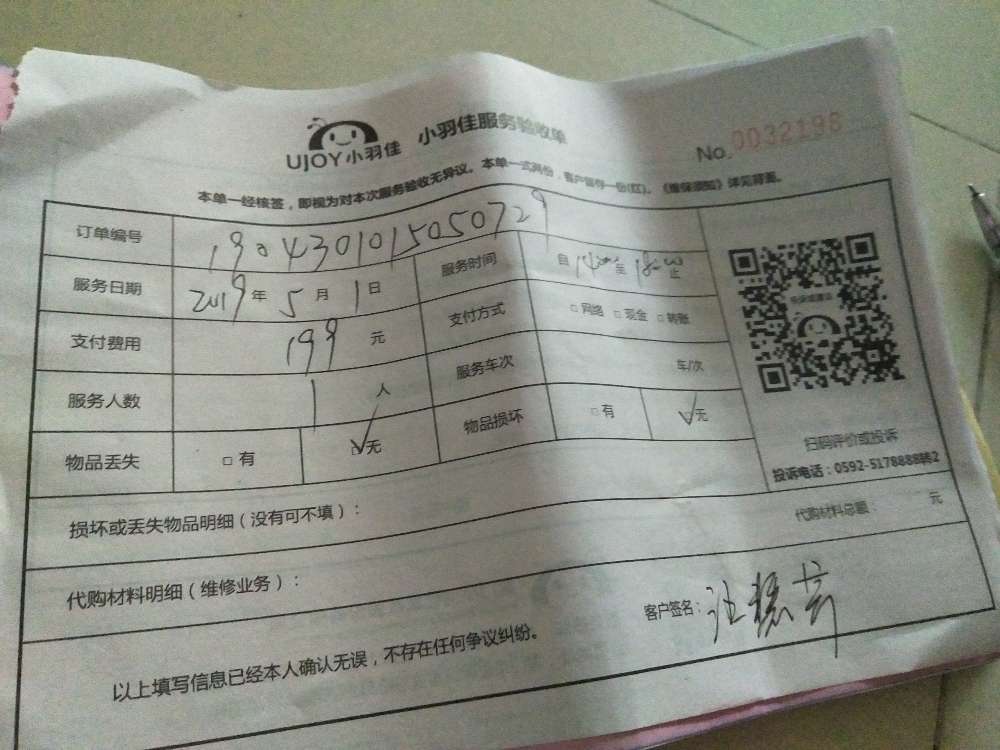 UJOY小羽佳 小羽佳服务验收单
No.0032198
本单一经核签，即视为对本次服务验收无异议。本单一式两份，客户留存一份(红)。《维保须知》详见背面。
订单编号 1904301015050729
服务日期 2019年5月1日 服务时间 自14:00至18:00止
支付费用 199元 支付方式 □网络 □现金 □转账
服务人数 1人 服务车次 车/次
物品丢失 □有 ☑无 物品损坏 □有 ☑无
扫码评价或投诉
投诉电话：0592-5178888转2
损坏或丢失物品明细（没有可不填）：
代购材料明细（维修业务）： 代购材料总额： 元
以上填写信息已经本人确认无误，不存在任何争议纠纷。
客户签名：